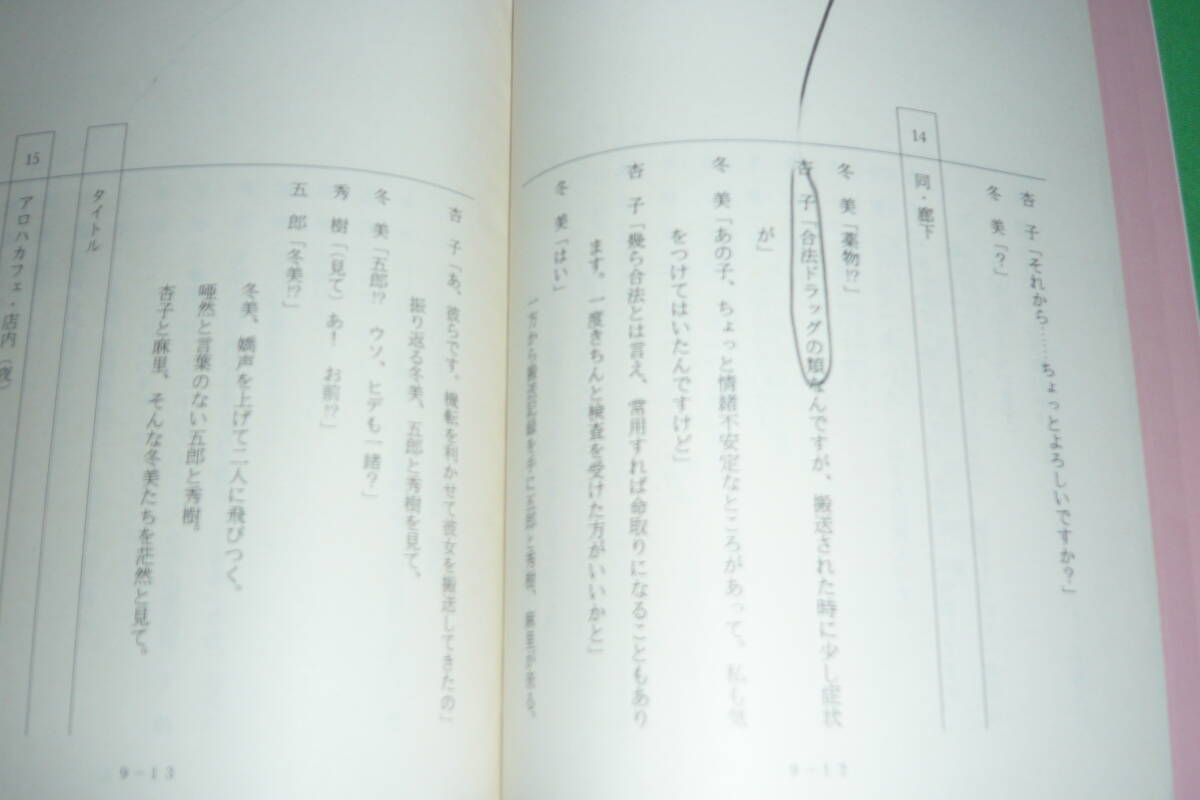 杏子「それから……ちょっとよろしいですか？」
冬美「？」
14 同・廊下
冬美「薬物!?」
杏子「合法ドラッグの類なんですが、搬送された時に少し症状
が」
冬美「あの子、ちょっと情緒不安定なところがあって。私も気
をつけてはいたんですけど」
杏子「幾ら合法とは言え、常用すれば命取りになることもあり
ます。一度きちんと検査を受けた方がいいかと」
冬美「はい」
一方から搬送記録を手に五郎と秀樹、麻里が来る。
9-12
杏子「あ、彼らです。機転を利かせて彼女を搬送してきたの」
振り返る冬美、五郎と秀樹を見て、
冬美「五郎!?　ウソ、ヒデも一緒？」
秀樹「（見て）あ！　お前!?」
五郎「冬美!?」
冬美、嬌声を上げて二人に飛びつく。
唖然と言葉のない五郎と秀樹。
杏子と麻里、そんな冬美たちを茫然と見て。
タイトル
15 アロハカフェ・店内（夜）
9-13